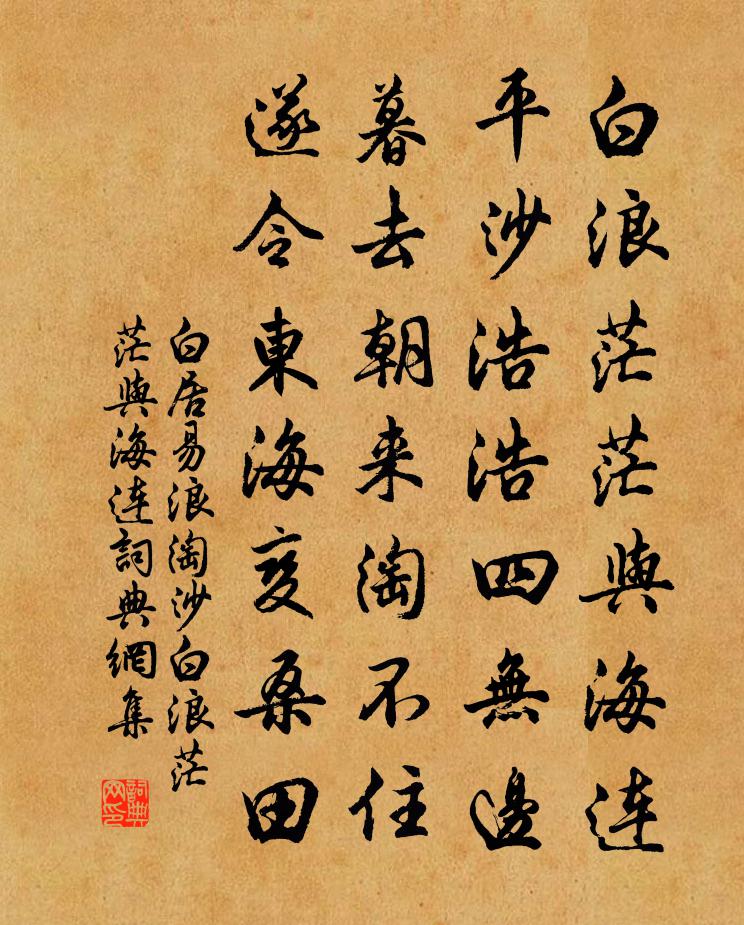 白浪茫茫與海連
平沙浩浩四無邊
暮去朝来淘不住
遂令東海变桑田
白居易浪淘沙白浪茫
茫與海連詞典網集
詞典
网印